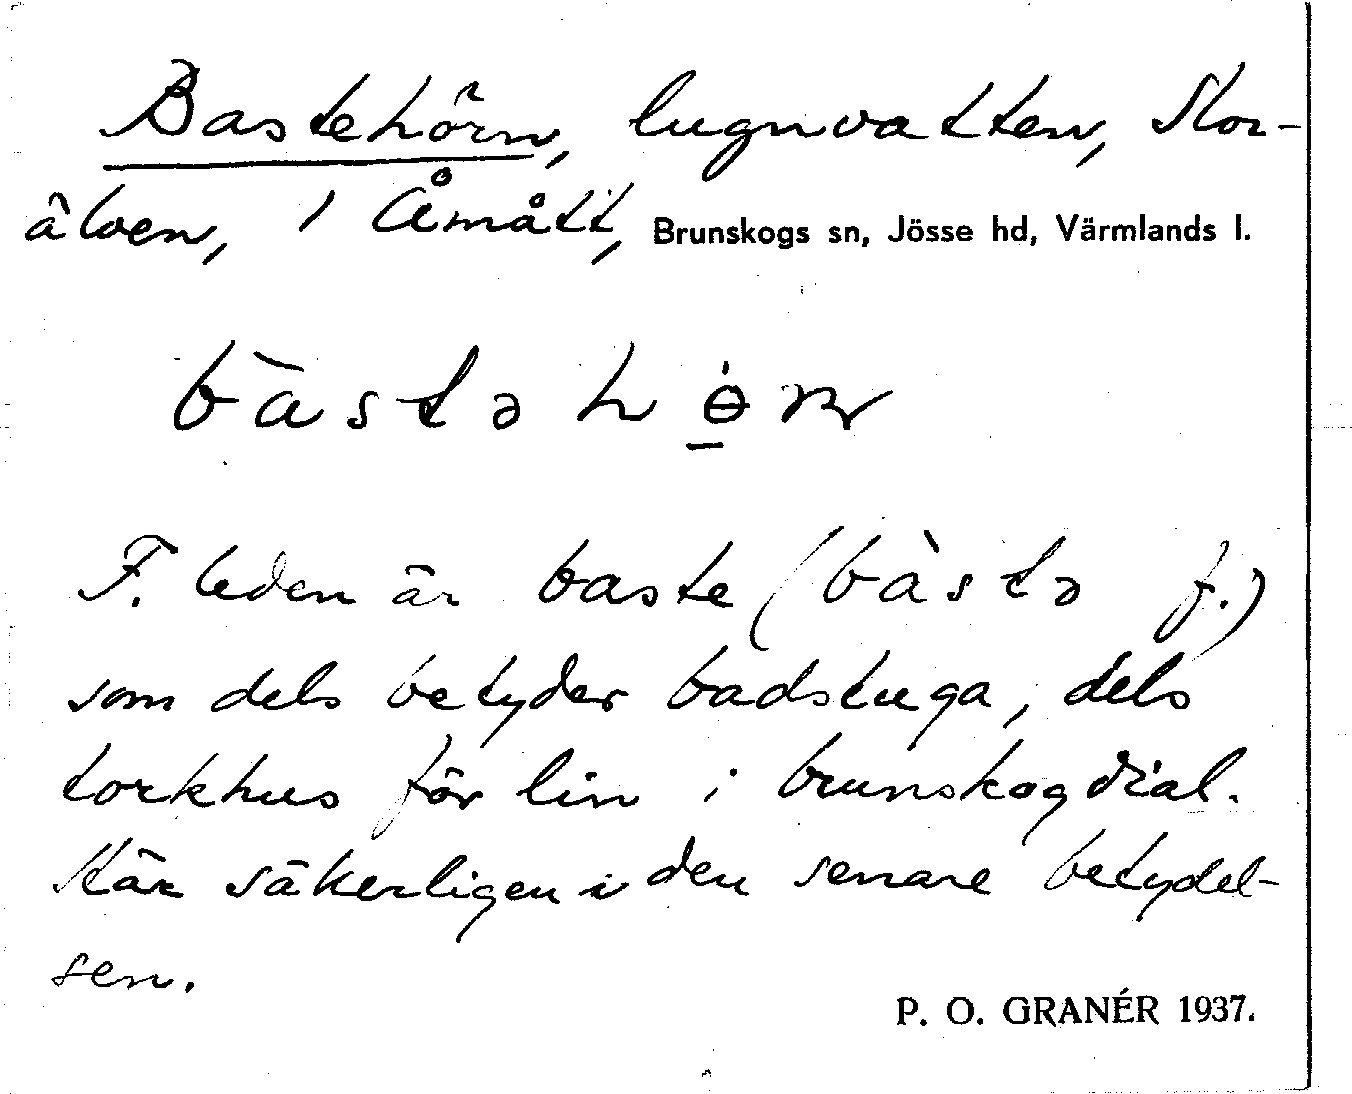 Bastehörn, lugnvatten, Stor-
älven, i Åmått, Brunskogs sn, Jösse hd, Värmlands l.
bàstəhө̲́rn
F. leden är baste (bàstə f.)
som dels betyder badstuga, dels
torkhus för lin i brunskogdial.
Här säkerligen i den senare betydel-
sen.
P. O. GRANÉR 1937.